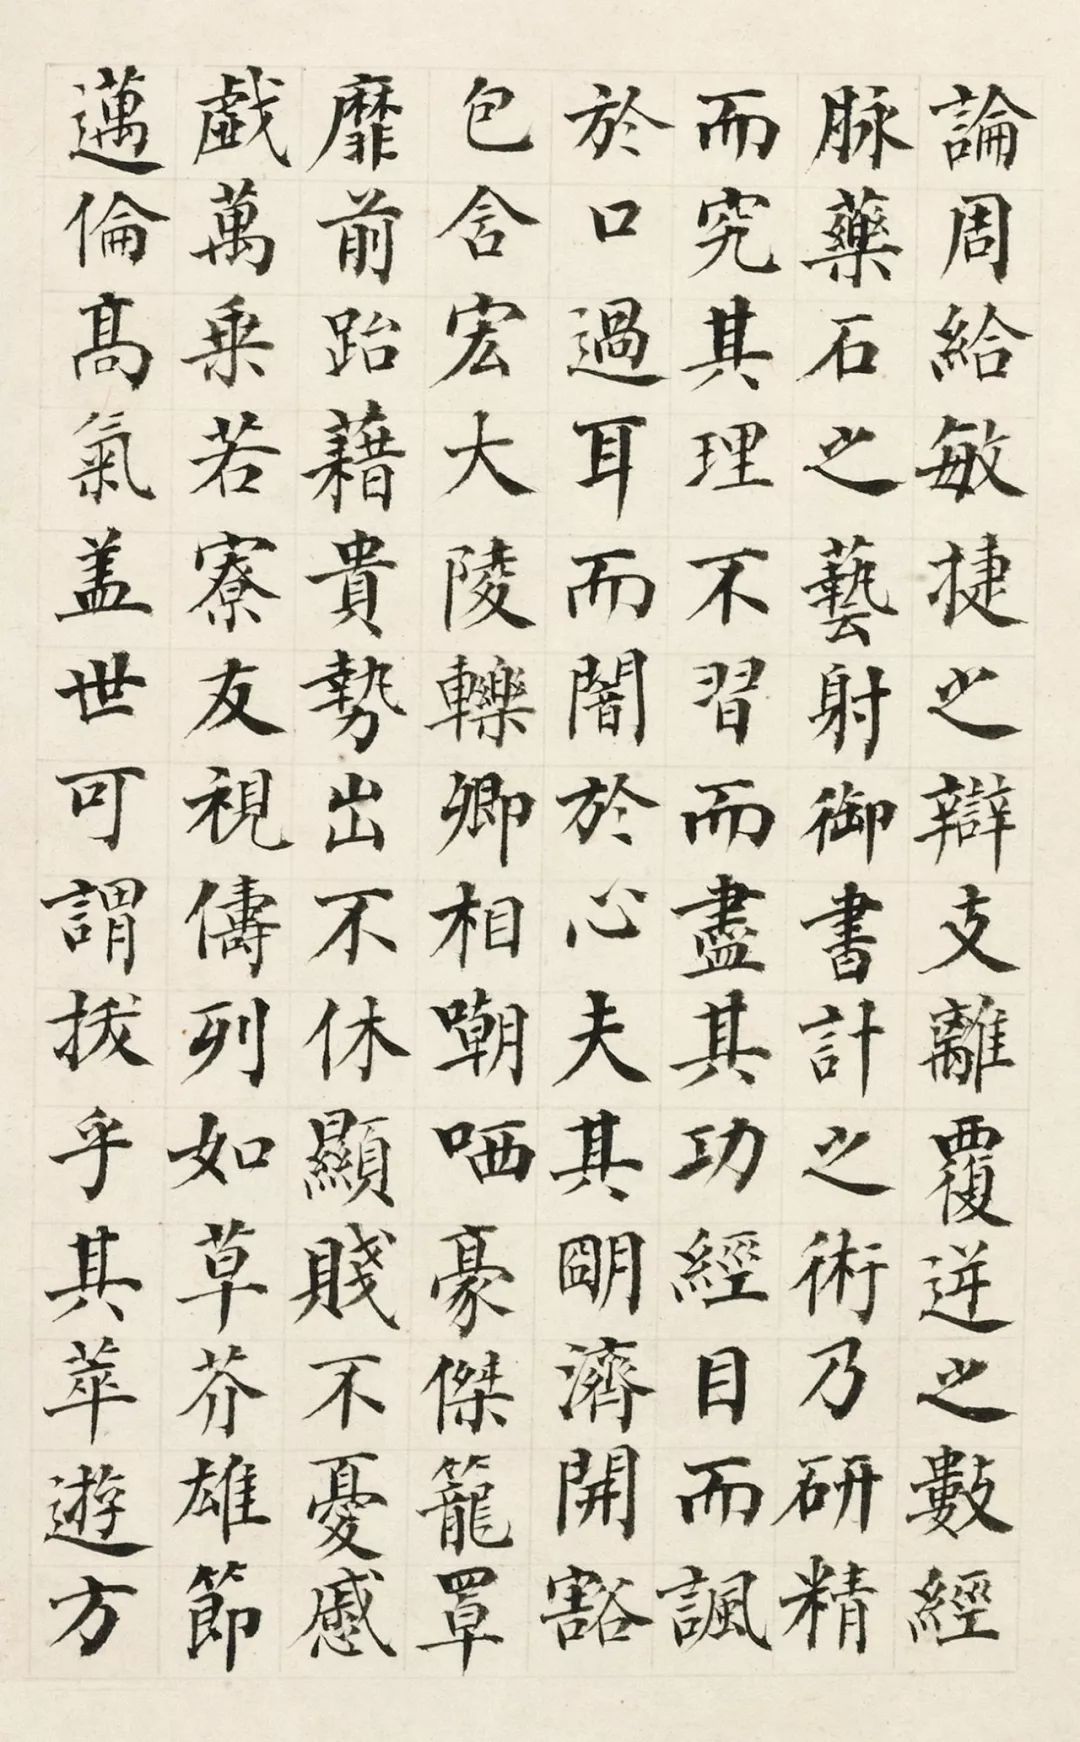 論周給敏捷之辯支離覆逆之數經
脉藥石之藝射御書計之術乃研精
而究其理不習而盡其功經目而諷
於口過耳而闇於心夫其明濟開豁
包含宏大陵轢卿相嘲哂豪傑籠罩
靡前跆藉貴勢出不休顯賤不憂慼
戲萬乘若寮友視儔列如草芥雄節
邁倫高氣盖世可謂拔乎其萃遊方